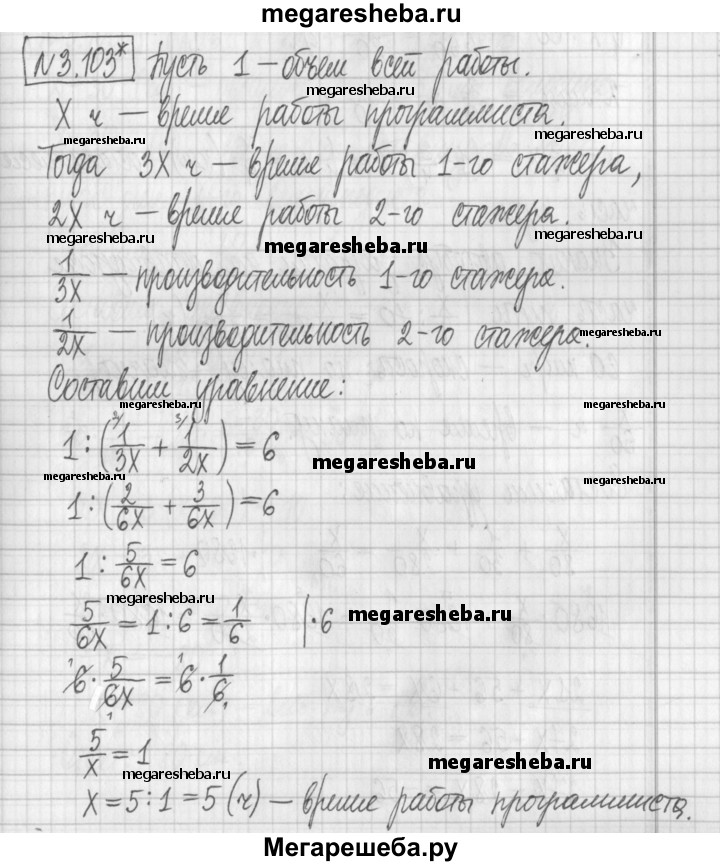 megaresheba.ru
N3.103* Пусть 1 – объем всей работы.
megaresheba.ru
X ч – время работы программиста.
megaresheba.ru
megaresheba.ru
Тогда 3X ч – время работы 1-го стажера,
2X ч – время работы 2-го стажера.
megaresheba.ru
megaresheba.ru
megaresheba.ru
1/3X – производительность 1-го стажера.
1/2X – производительность 2-го стажера.
megaresheba.ru
Составим уравнение:
megaresheba.ru
megaresheba.ru
1 : (2/ 1/3X + 3/ 1/2X) = 6
megaresheba.ru
megaresheba.ru
1 : (2/6X + 3/6X) = 6
1 : 5/6X = 6
megaresheba.ru
5/6X = 1 : 6 = 1/6 | · 6
megaresheba.ru
6 · 5/6X = 6 · 1/6
5/X = 1
megaresheba.ru
megaresheba.ru
X = 5 : 1 = 5 (ч) – время работы программиста.
megaresheba.ru
Мегарешеба.ру